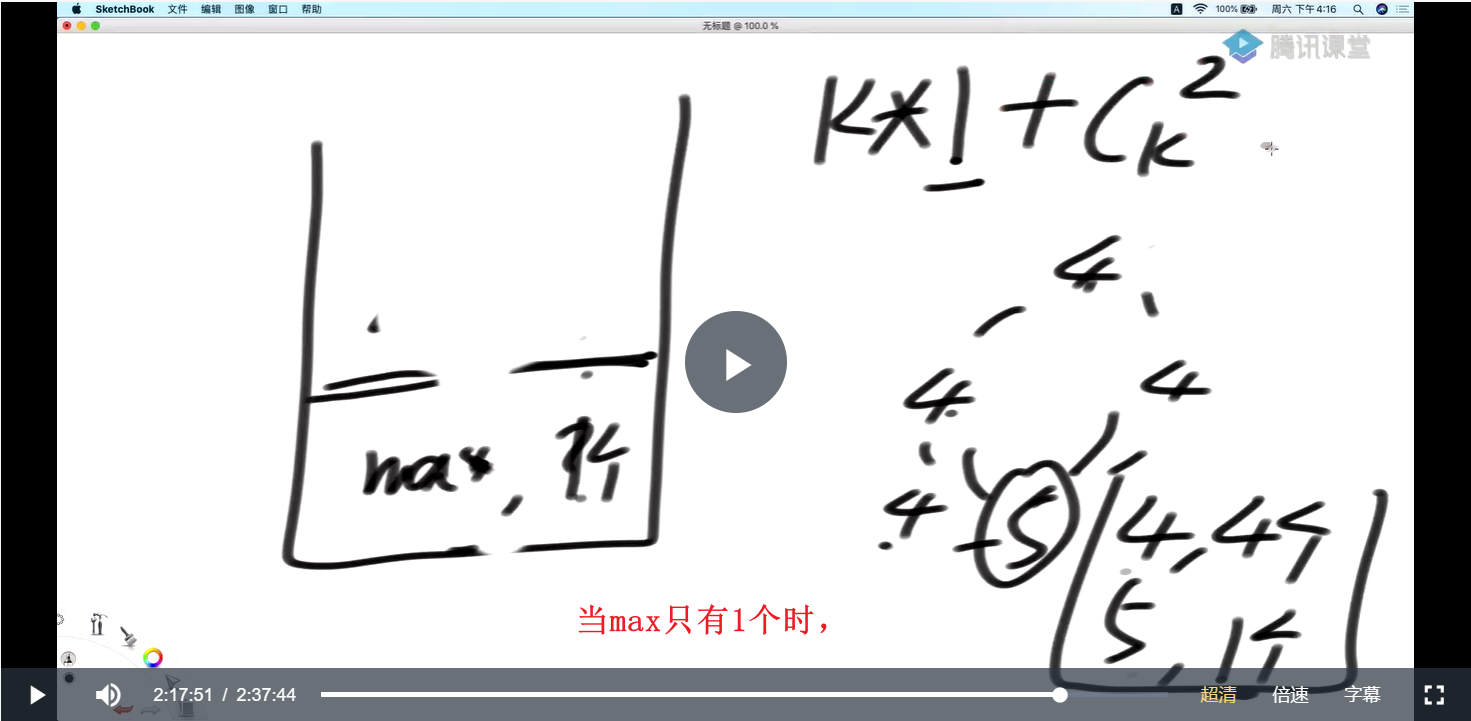 SketchBook 文件 编辑 图像 窗口 帮助 A 100% 周六 下午4:16
无标题 @ 100.0 %
腾讯课堂
K*1 + C_K^2
4
4 4
max, 1个
4 5 4,4个
5,1个
当max只有1个时，
2:17:51 / 2:37:44 超清 倍速 字幕